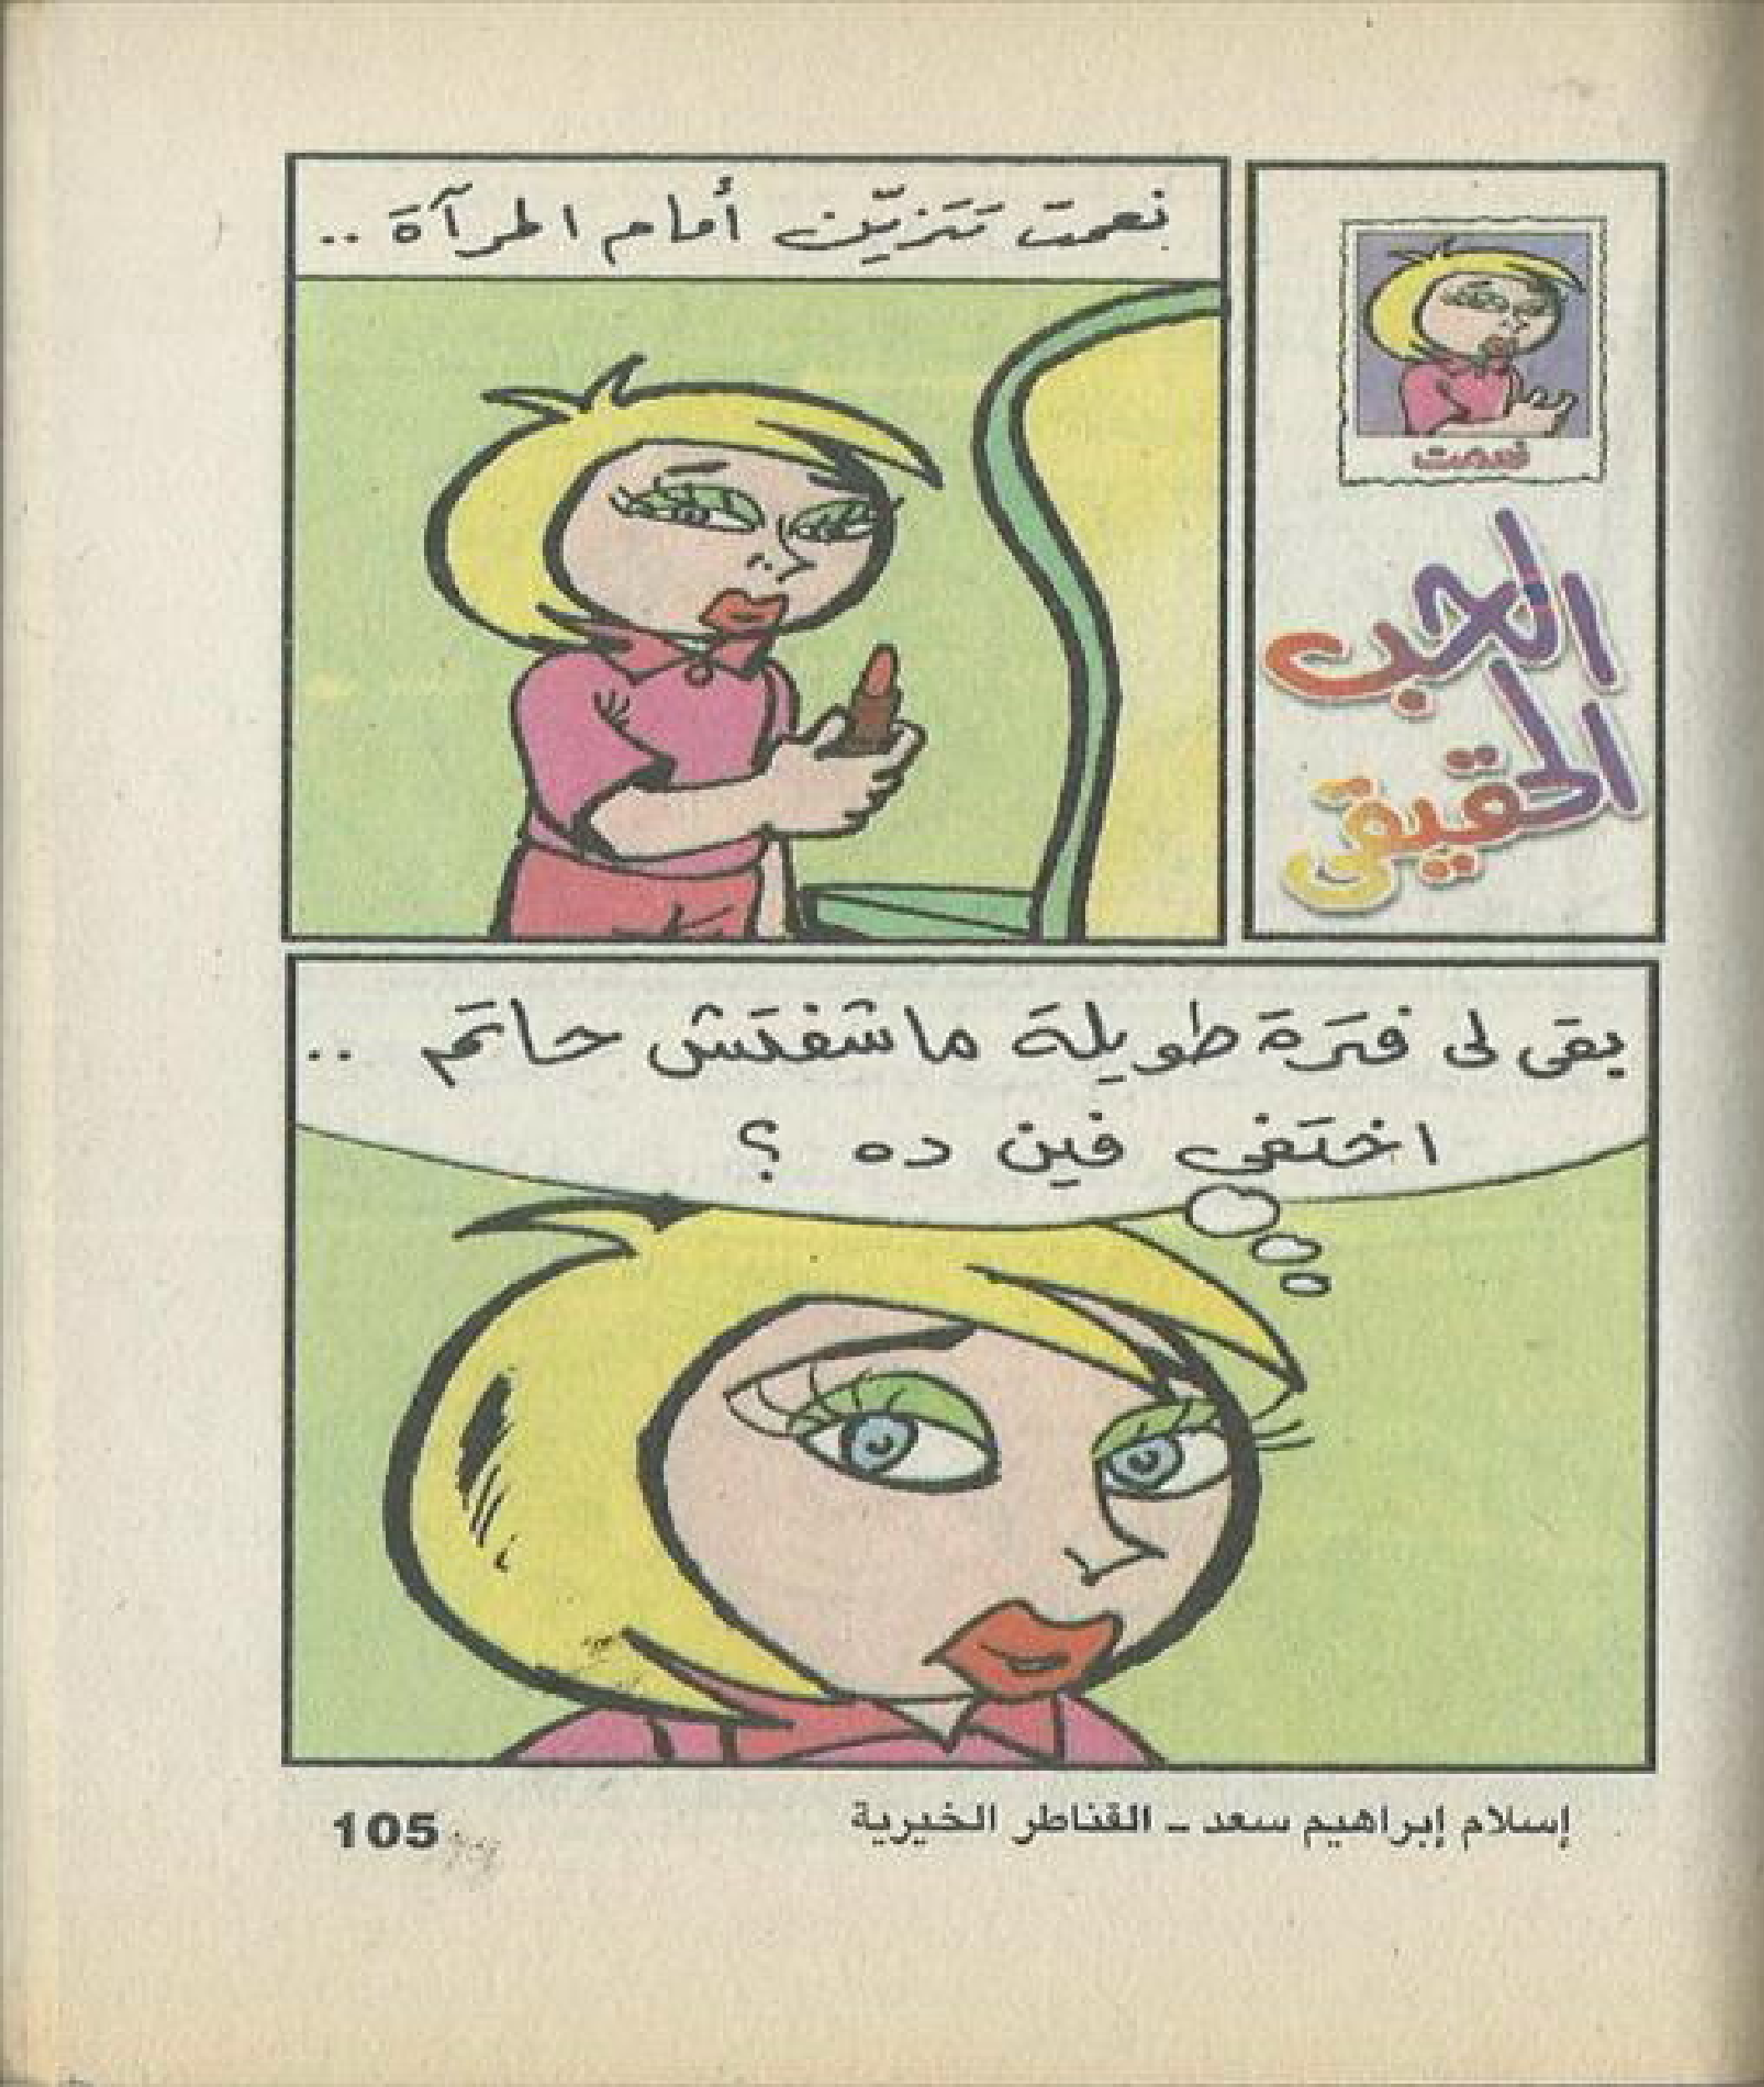 نعمت
الحب
الحقيقى
نعمت تتزيّن أمام المرآة ..
بقى لى فترة طويلة ماشفتش حاتم ..
اختفى فين ده ؟
إسلام إبراهيم سعد - القناطر الخيرية
105